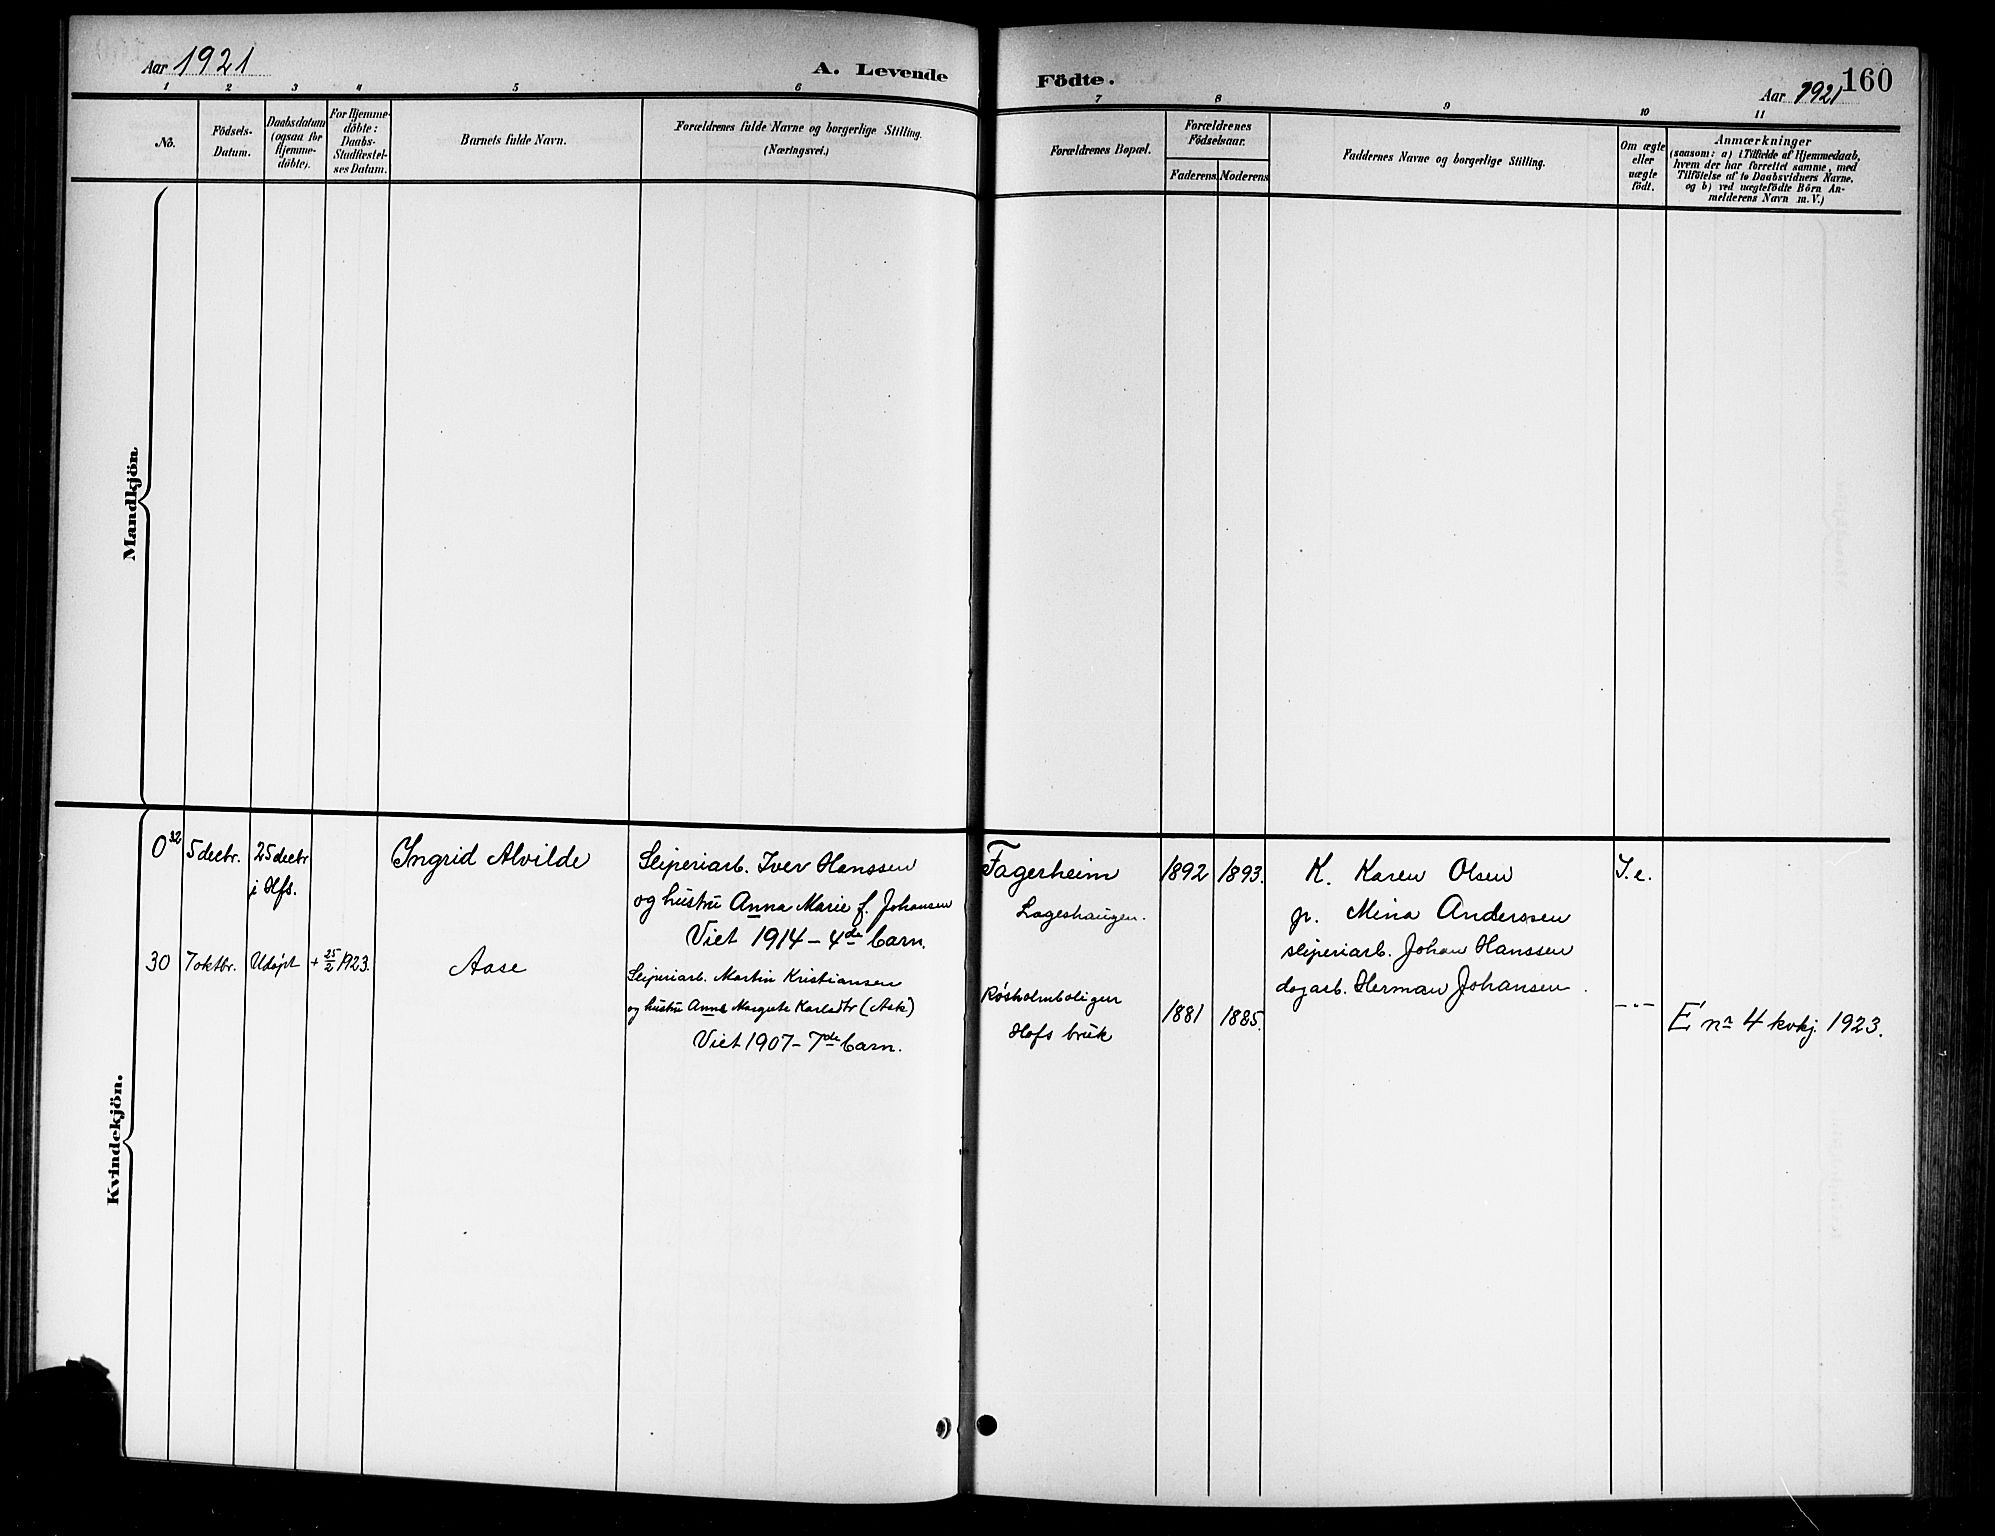 Aar 1921
A. Levende
Födte.
Aar 1921
160
1 2 3 4 5 6
7 8 9 10 11
No.
Födsels-
Datum.
Daabsdatum
(ogsaa for
Hjemme-
döbte).
For Hjemme-
döbte:
Daabs-
Stadfæstel-
ses Datum.
Barnets fulde Navn.
Forældrenes fulde Navne og borgerlige Stilling.
(Næringsvei.)
Forældrenes Bopæl.
Forældrenes
Födselsaar.
Faderens. Moderens.
Faddernes Navne og borgerlige Stilling.
Om ægte
eller
uægte
født.
Anmærkninger
(saasom: a) i Tilfælde af Hjemmedaab,
hvem der har forrettet samme, med
Tilföielse af to Daabsvidners Navne,
og b) ved uægtefödte Börn An-
melderens Navn m. V.)
Mandkjön
Kvindekjön.
0 32
5 decbr.
25 decbr
i Hfs.
Ingrid Alvilde
Sliperiarb. Iver Hanssen
og hustru Anna Marie f. Johansen
Viet 1914 - 4de barn.
Fagerheim
Lageshaugen.
1892
1893.
K. Karen Olsen
p. Mina Anderssen
sliperiarb. Johan Hanssen
dagarb. Herman Johansen.
I. e.
30
7 oktbr.
Udøpt
+ 25/2 1923.
Aase
Sliperiarb. Martin Kristiansen
og hustru Anna Margrete Karlsdtr (Ask)
Viet 1907 - 7de barn.
Røsholmboligen
Hofs bruk
1881
1885.
- " -
E nr 4 kvkj. 1923.